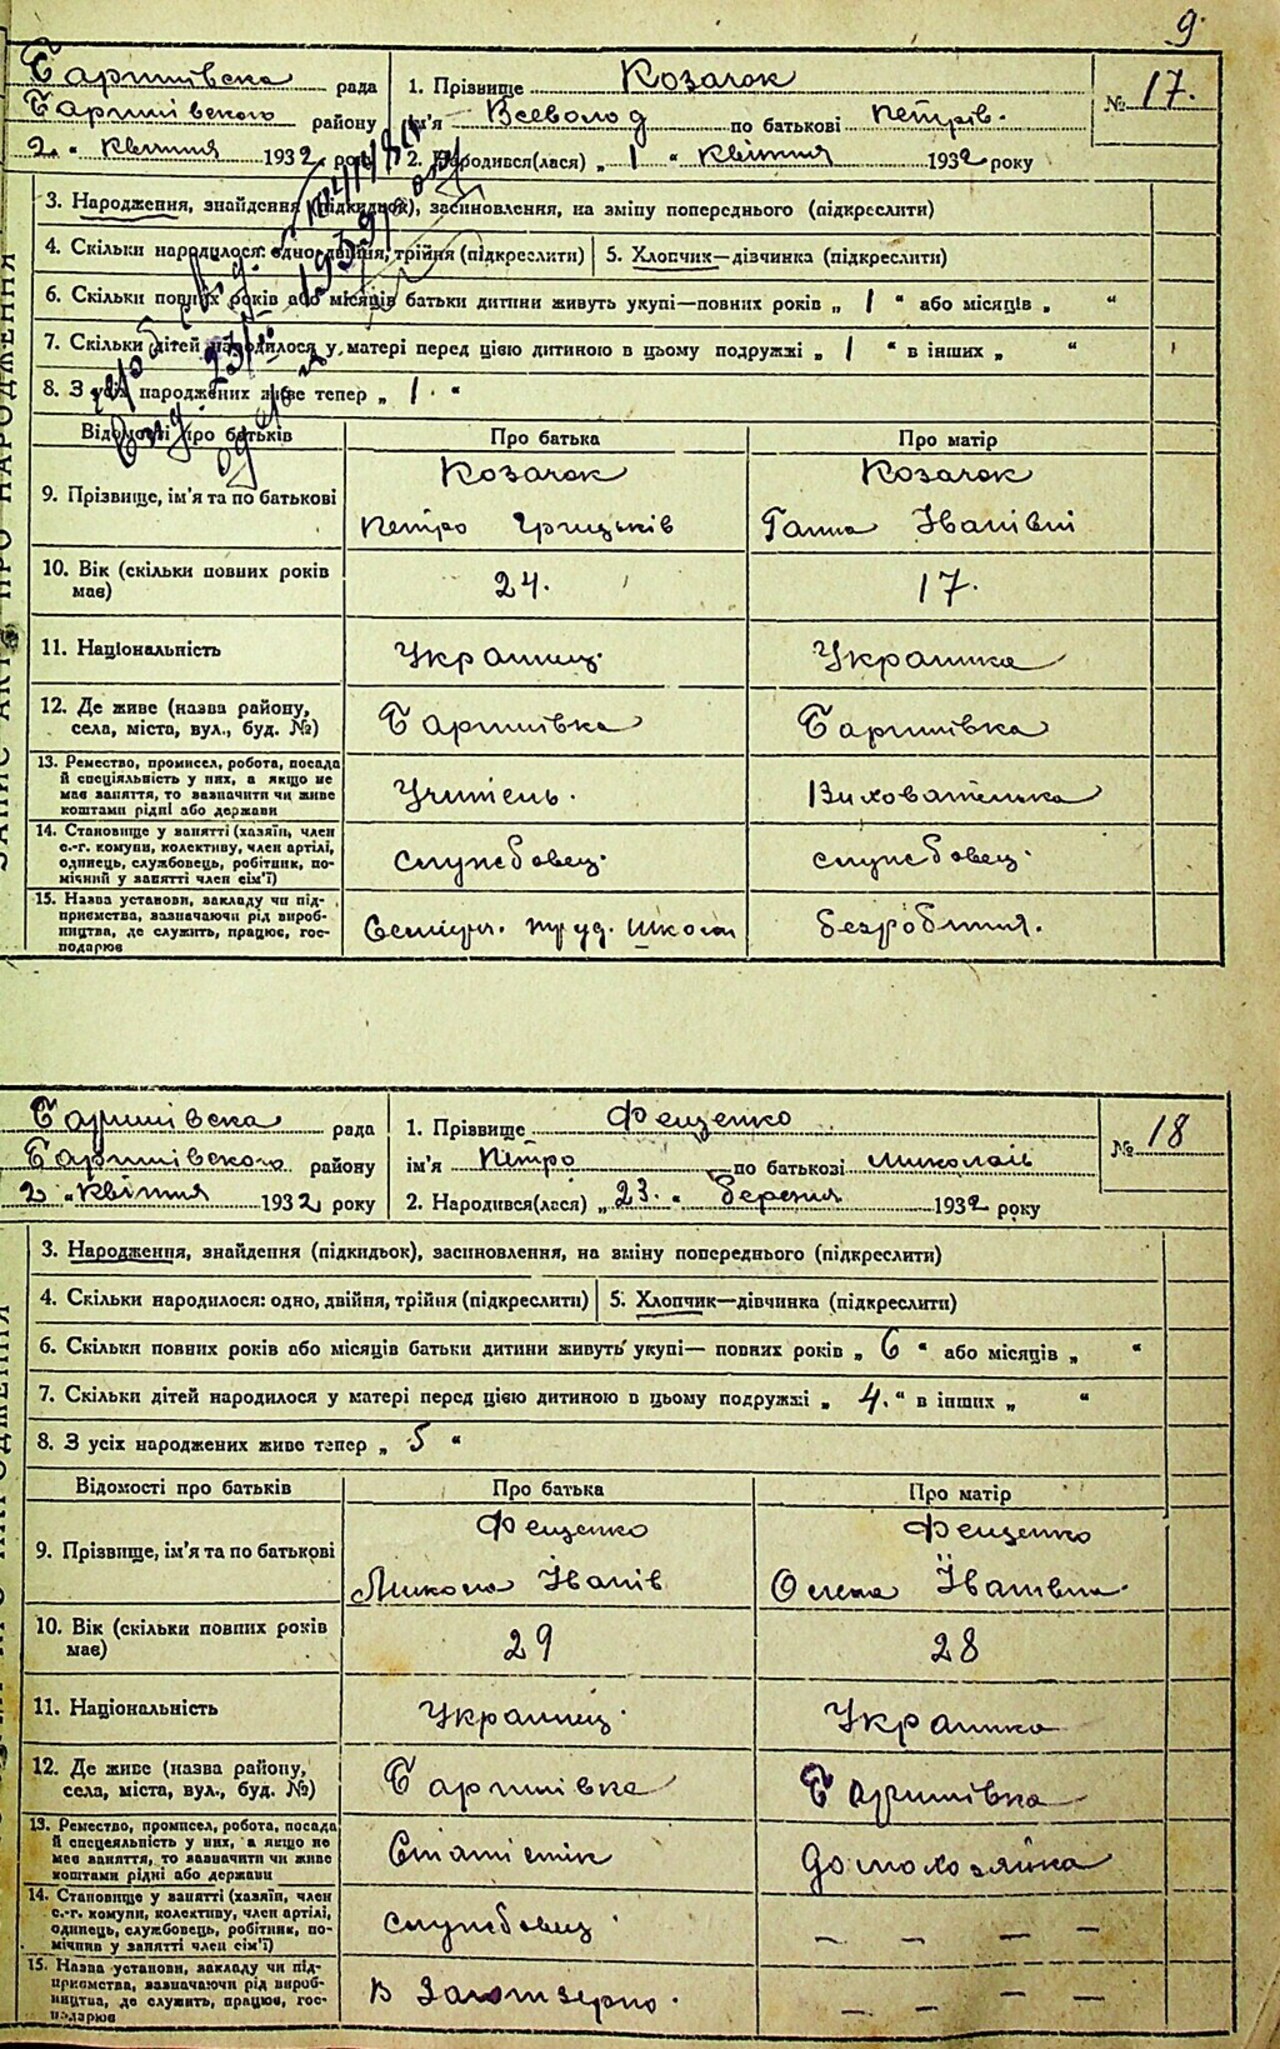 9.
Баришівська рада
Баришівського району
2 " квітня 1932 року
1. Прізвище Козачок
ім'я Всеволод по батькові петрів.
2. Народився(лася) „ 1 " квітня 1932 року
№ 17.
3. Народження, знайдення (підкидьок), засиновлення, на зміну попереднього (підкреслити)
4. Скільки народилося: одно, двійня, трійня (підкреслити)
5. Хлопчик—дівчинка (підкреслити)
6. Скільки повних років або місяців батьки дитини живуть укупі—повних років „ 1 " або місяців „ "
7. Скільки дітей народилося у матері перед цією дитиною в цьому подружжі „ 1 " в інших „ "
8. З усіх народжених живе тепер „ 1. "
Відомості про батьків
Про батька
Про матір
9. Прізвище, ім'я та по батькові
Козачок
петро Грицьків
Козачок
Ганна Іванівні
10. Вік (скільки повних років
має)
24.
17.
11. Національність
Українец.
Украінка
12. Де живе (назва району,
села, міста, вул., буд. №)
Баришівка
Баришівка
13. Ремество, промисел, робота, посада
й спеціяльність у них, а якщо не
має заняття, то зазначити чи живе
коштами рідні або держави
Учитель.
Вихователька
14. Становище у занятті (хазяїн, член
с.-г. комуни, колективу, член артілі,
одинець, службовець, робітник, по-
мічний у занятті член сім'ї)
службовец.
службовец.
15. Назва установи, закладу чи під-
приємства, зазначаючи рід вироб-
ництва, де служить, працює, гос-
подарює
труд. школи
безробітня.
ЗАПИС АКТ ПРО НАРОДЖЕННЯ
Баришівська рада
Баришівського району
2 " квітня 1932 року
1. Прізвище Фещенко
ім'я Петро по батькові миколаів
2. Народився(лася) „ 23. " березня 1932 року
№ 18
3. Народження, знайдення (підкидьок), засиновлення, на зміну попереднього (підкреслити)
4. Скільки народилося: одно, двійня, трійня (підкреслити)
5. Хлопчик—дівчинка (підкреслити)
6. Скільки повних років або місяців батьки дитини живуть укупі— повних років „ 6 " або місяців „ "
7. Скільки дітей народилося у матері перед цією дитиною в цьому подружжі „ 4. " в інших „ "
8. З усіх народжених живе тепер „ 5 "
Відомості про батьків
Про батька
Про матір
9. Прізвище, ім'я та по батькові
Фещенко
Микола Іванів
Фещенко
Олена Іванівна
10. Вік (скільки повних років
має)
29
28
11. Національність
Українец.
Украінка
12. Де живе (назва району,
села, міста, вул., буд. №)
Баришівка
Баришівка
13. Ремество, промисел, робота, посада
й спецеяльність у них, а якщо не
має заняття, то зазначити чи живе
коштами рідні або держави
Статистік
домохозяйка
14. Становище у занятті (хазяїн, член
с.-г. комуни, колективу, член артілі,
одинець, службовець, робітник, по-
мічний у занятті член сім'ї)
службовец
— — — —
15. Назва установи, закладу чи під-
приємства, зазначаючи рід вироб-
ництва, де служить, працює, гос-
подарює
в Заготзерно.
— — — —